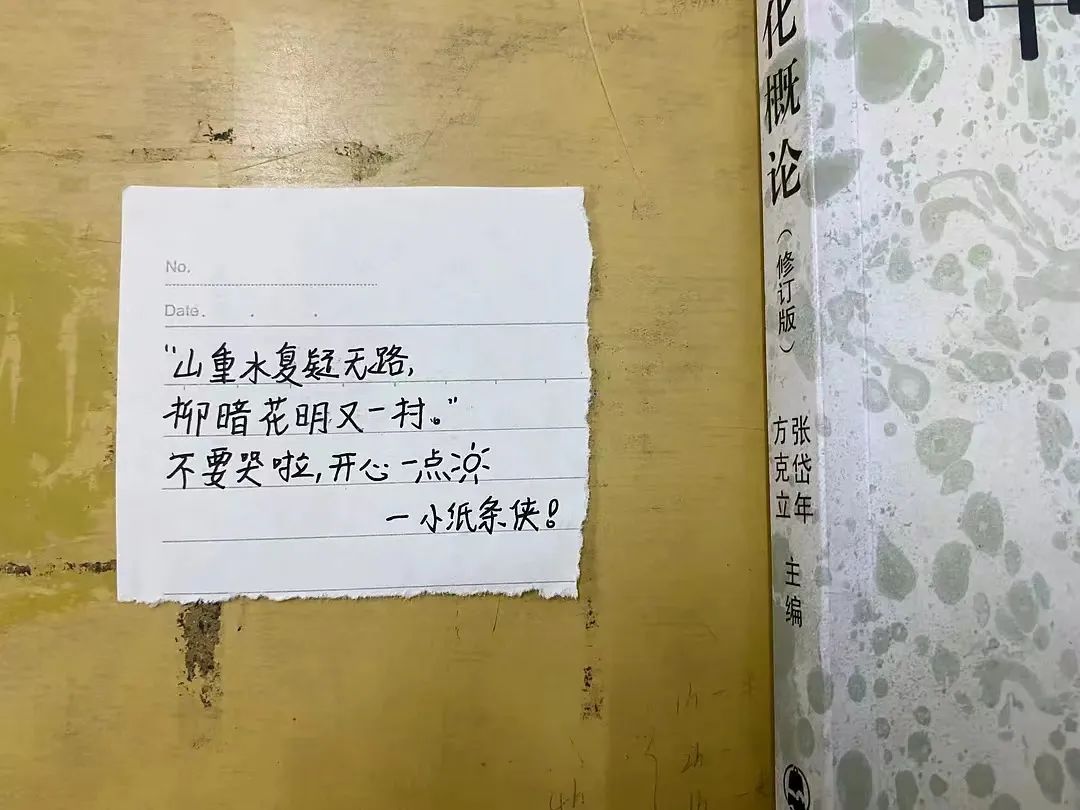 No.
Date.
"山重水复疑无路,
柳暗花明又一村。"
不要哭啦,开心一点
一小纸条侠!
化概论
(修订版)
张岱年
方克立
主编